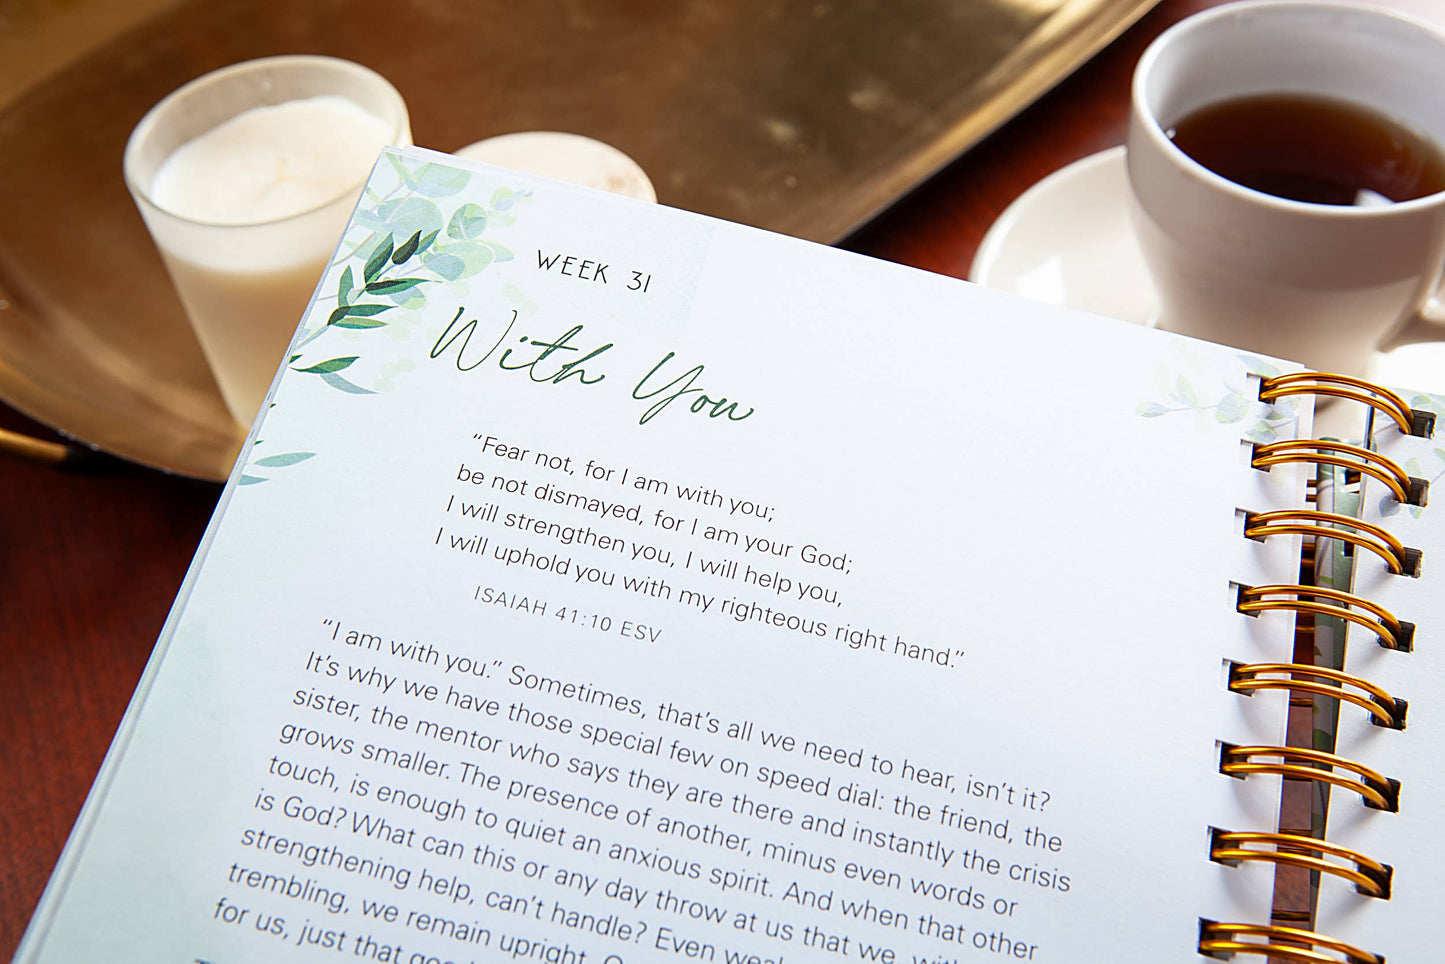 WEEK 31
With You
“Fear not, for I am with you;
be not dismayed, for I am your God;
I will strengthen you, I will help you,
I will uphold you with my righteous right hand.”
ISAIAH 41:10 ESV
“I am with you.” Sometimes, that’s all we need to hear, isn’t it?
It’s why we have those special few on speed dial: the friend, the
sister, the mentor who says they are there and instantly the crisis
grows smaller. The presence of another, minus even words or
touch, is enough to quiet an anxious spirit. And when that other
is God? What can this or any day throw at us that we, with
strengthening help, can’t handle? Even
trembling, we remain upright.
for us, just that